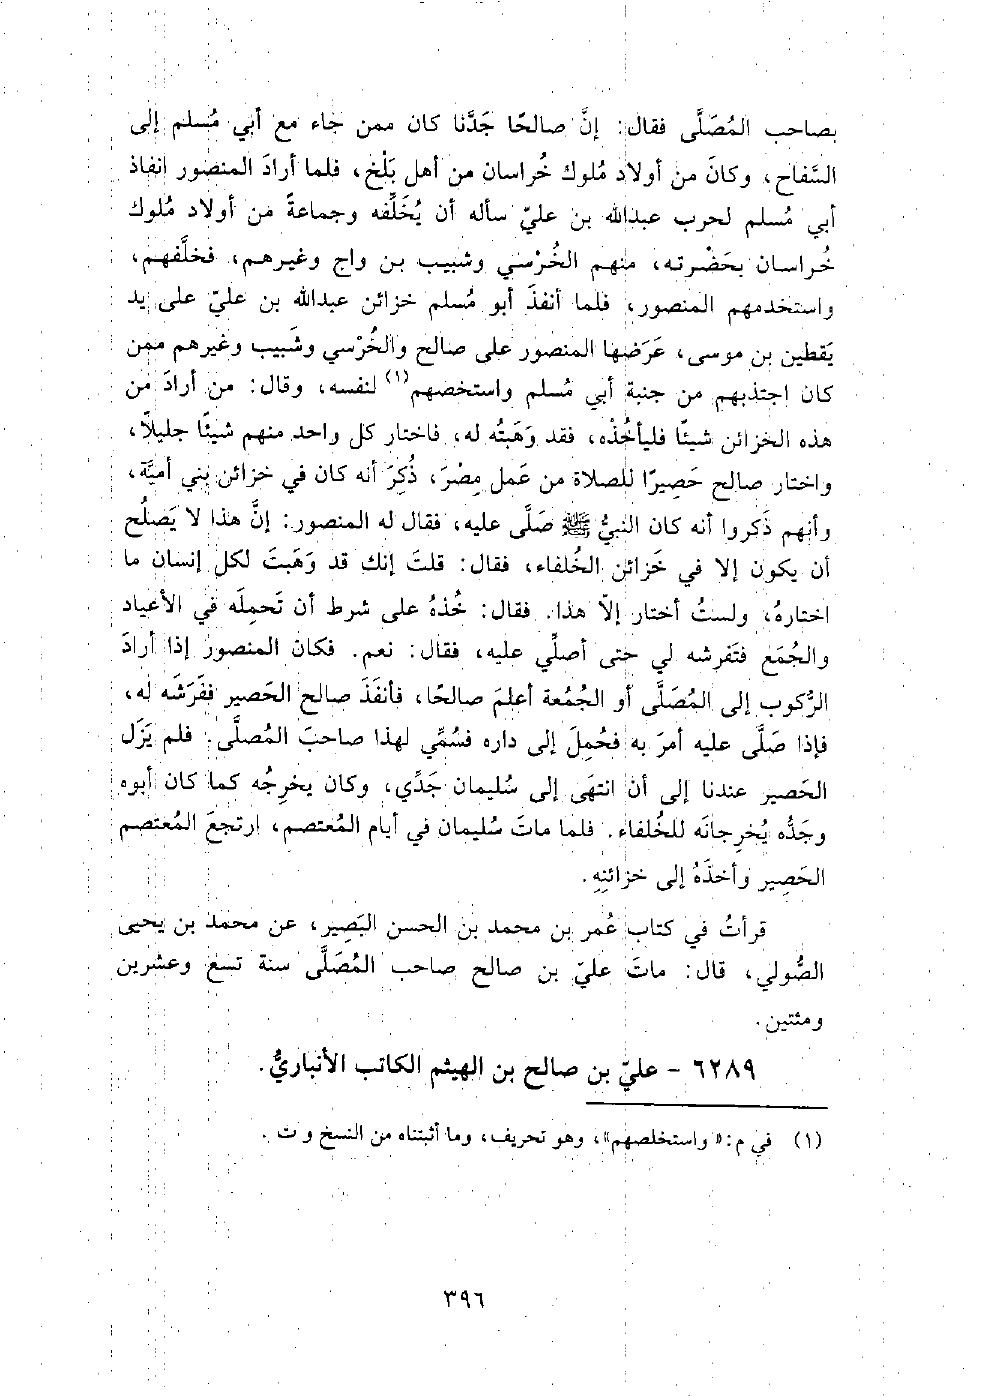 بصاحب المُصَلَّى فقال: إنَّ صالحًا جَدَّنا كان ممن جاء مع أبي مُسلم إلى
السَّفاح، وكانَ من أولاد مُلوك خُراسان من أهل بَلْخ، فلما أرادَ المنصور انفاذ
أبي مُسلم لحرب عبدالله بن عليّ سأله أن يُخَلِّفه وجماعةً من أولاد مُلوك
خُراسان بحَضْرته، منهم الخُرْسي وشبيب بن واج وغيرهم، فخلَّفهم،
واستخدمهم المنصور، فلما أنفذَ أبو مُسلم خزائن عبدالله بن عليّ على يد
يَقطين بن موسى، عَرَضها المنصور على صالح والخُرْسي وشَبيب وغيرهم ممن
كان اجتذبهم من جنبة أبي مُسلم واستخصهم(١) لنفسه، وقال: من أرادَ من
هذه الخزائن شيئًا فليأخُذه، فقد وَهَبتُه له، فاختار كل واحد منهم شيئًا جليلاً،
واختار صالح حَصِيرًا للصلاة من عَمل مِصْرَ، ذُكِرَ أنه كان في خزائن بني أميَّة،
وأنهم ذَكروا أنه كان النبيُّ ﷺ صَلَّى عليه، فقال له المنصور: إنَّ هذا لا يَصلُح
أن يكون إلا في خَزائن الخُلفاء، فقال: قلتَ إنك قد وَهَبتَ لكل إنسان ما
اختارهُ، ولستُ أختار إلاّ هذا. فقال: خُذهُ على شرط أن تَحمِلَه في الأعياد
والجُمَع فتَفرشه لي حتى أصلِّي عليه، فقال: نعم. فكان المنصور إذا أرادَ
الرُّكوب إلى المُصَلَّى أو الجُمُعة أعلمَ صالحًا، فأنفَذَ صالح الحَصير ففَرَشَه له،
فإذا صَلَّى عليه أمرَ به فحُمِلَ إلى داره فسُمِّي لهذا صاحبَ المُصلَّى. فلم يَزَل
الحَصير عندنا إلى أن انتهَى إلى سُليمان جَدِّي، وكان يخرِجُه كما كان أبوه
وجَدُّه يُخرِجانَه للخُلفاء. فلما ماتَ سُليمان في أيام المُعتصم، ارتجعَ المُعتصم
الحَصِير وأخذَهُ إلى خزائنِهِ.
قرأتُ في كتاب عُمر بن محمد بن الحسن البَصِير، عن محمد بن يحيى
الصُّولي، قال: ماتَ عليّ بن صالح صاحب المُصَلَّى سنة تسع وعشرين
ومئتين.
٦٢٨٩ - عليّ بن صالح بن الهيثم الكاتب الأنباريُّ.
(١) في م: «واستخلصهم»، وهو تحريف، وما أثبتناه من النسخ و ت .
٣٩٦